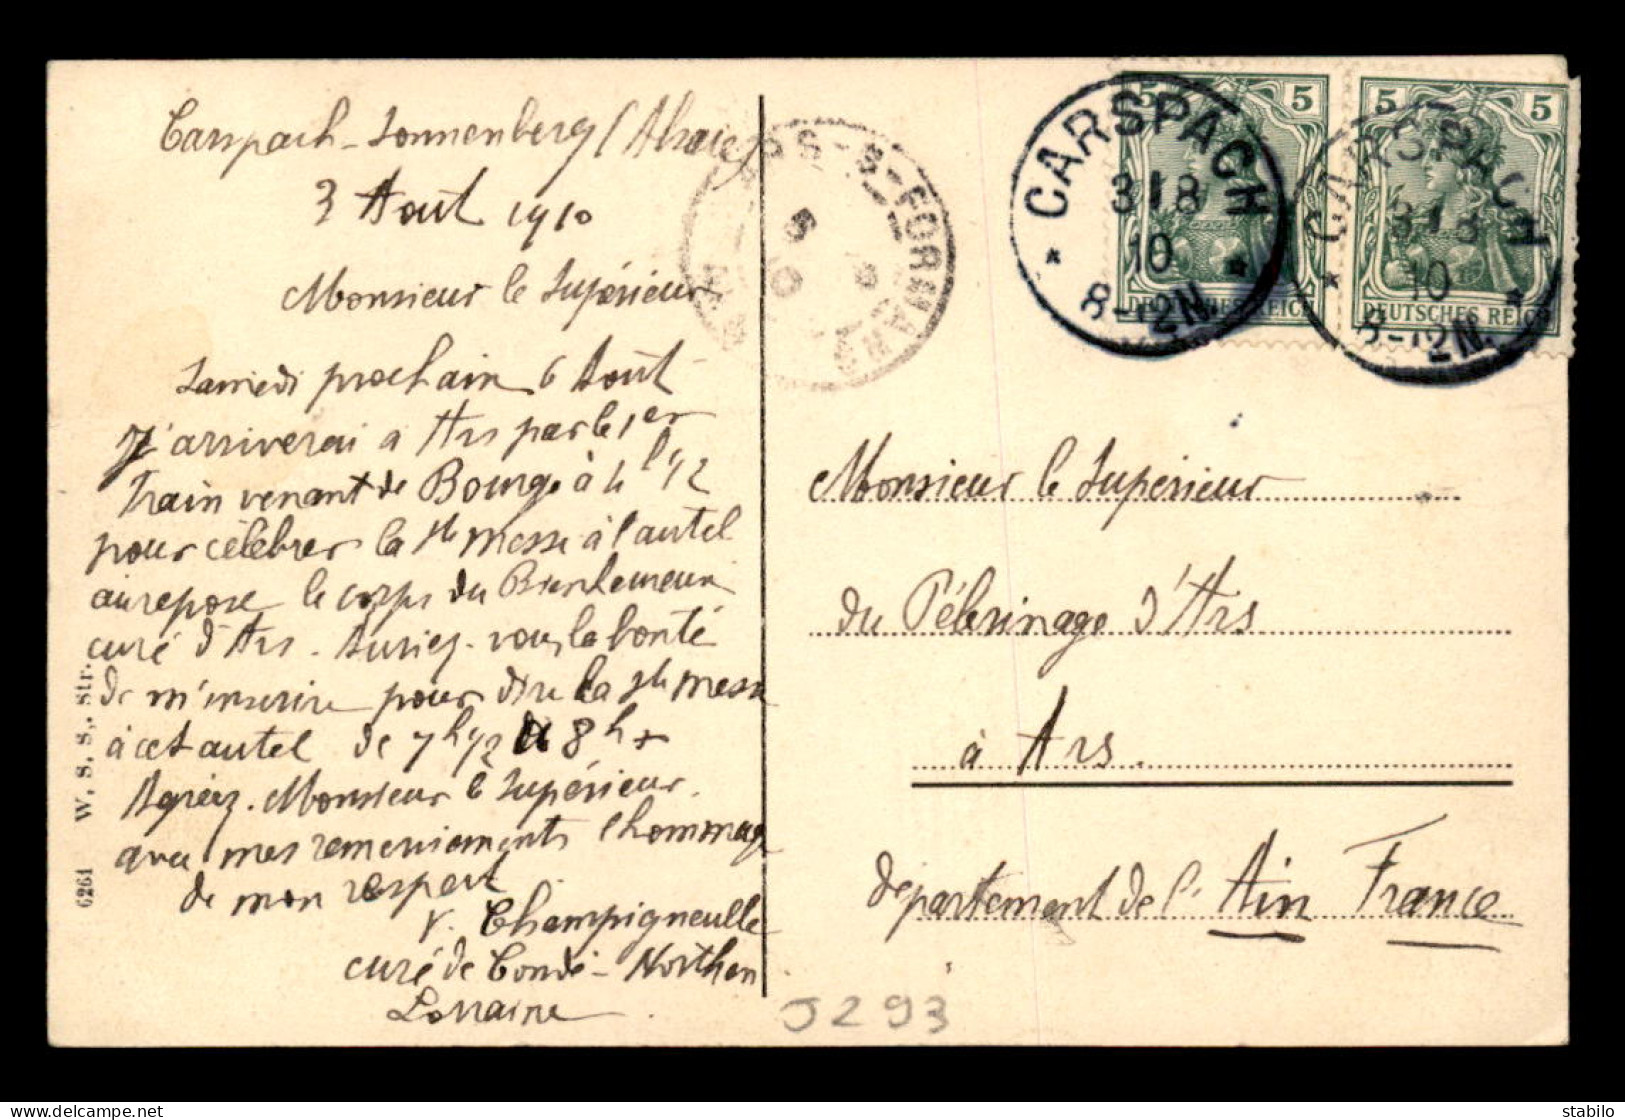 Carspach-Sonnenberg (Alsace)
3 Août 1910
Monsieur le Supérieur
Samedi prochain 6 Août
j'arriverai à Ars par le 1er
Train venant de Bourg à
pour célébrer la Ste Messe à l'autel
où repose le corps du Bienheureux
curé d'Ars. Auriez-vous la bonté
de m'inscrire pour dire la Ste Messe
à cet autel de 7h 1/2 à 8h
Agréez Monsieur le Supérieur
avec mes remerciements l'hommage
de mon respect
V. Champigneulle
curé de Condé-Northen
Lorraine
6261 W. S. S. Str.
ARS-S-FORMANS
CARSPACH
3 8
10
8-12N.
5 5
DEUTSCHES REICH
CARSPACH
3 8
10
8-12N.
5 5
DEUTSCHES REICH
Monsieur le Supérieur
du Pélerinage d'Ars
à Ars.
département de l'Ain France
J293
stabilo
delcampe.net